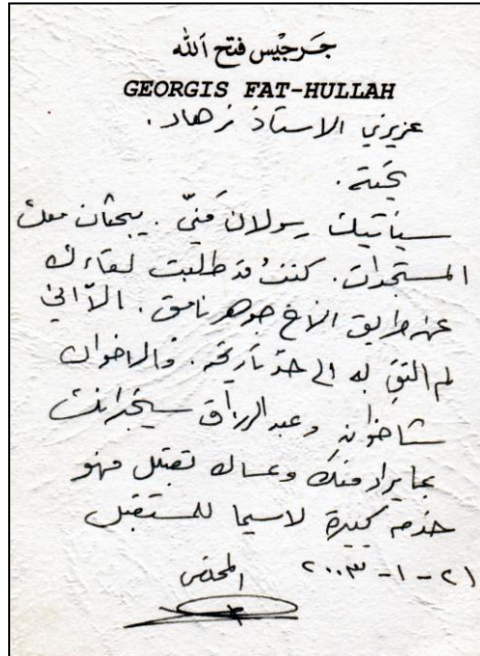 جَرجيْس فتح آلله
GEORGIS FAT-HULLAH
عزيزي الاستاذ فرهاد.
تحية.
سيأتيك رسولان منّي. يبحثان معك
المستجدات. كنتُ قد طلبت لقاءك
عن طريق الاخ جوهر نامق. الاّ اني
لم التقِ به الى حدّ تاريخه. فالاخوان
شاخوان وعبدالرزاق سيخبرانك
بما يراد منك وعساك تقبل فهو
خدمة كبيرة لاسيما للمستقبل
٢١-١-٢٠٠٣
المخلص